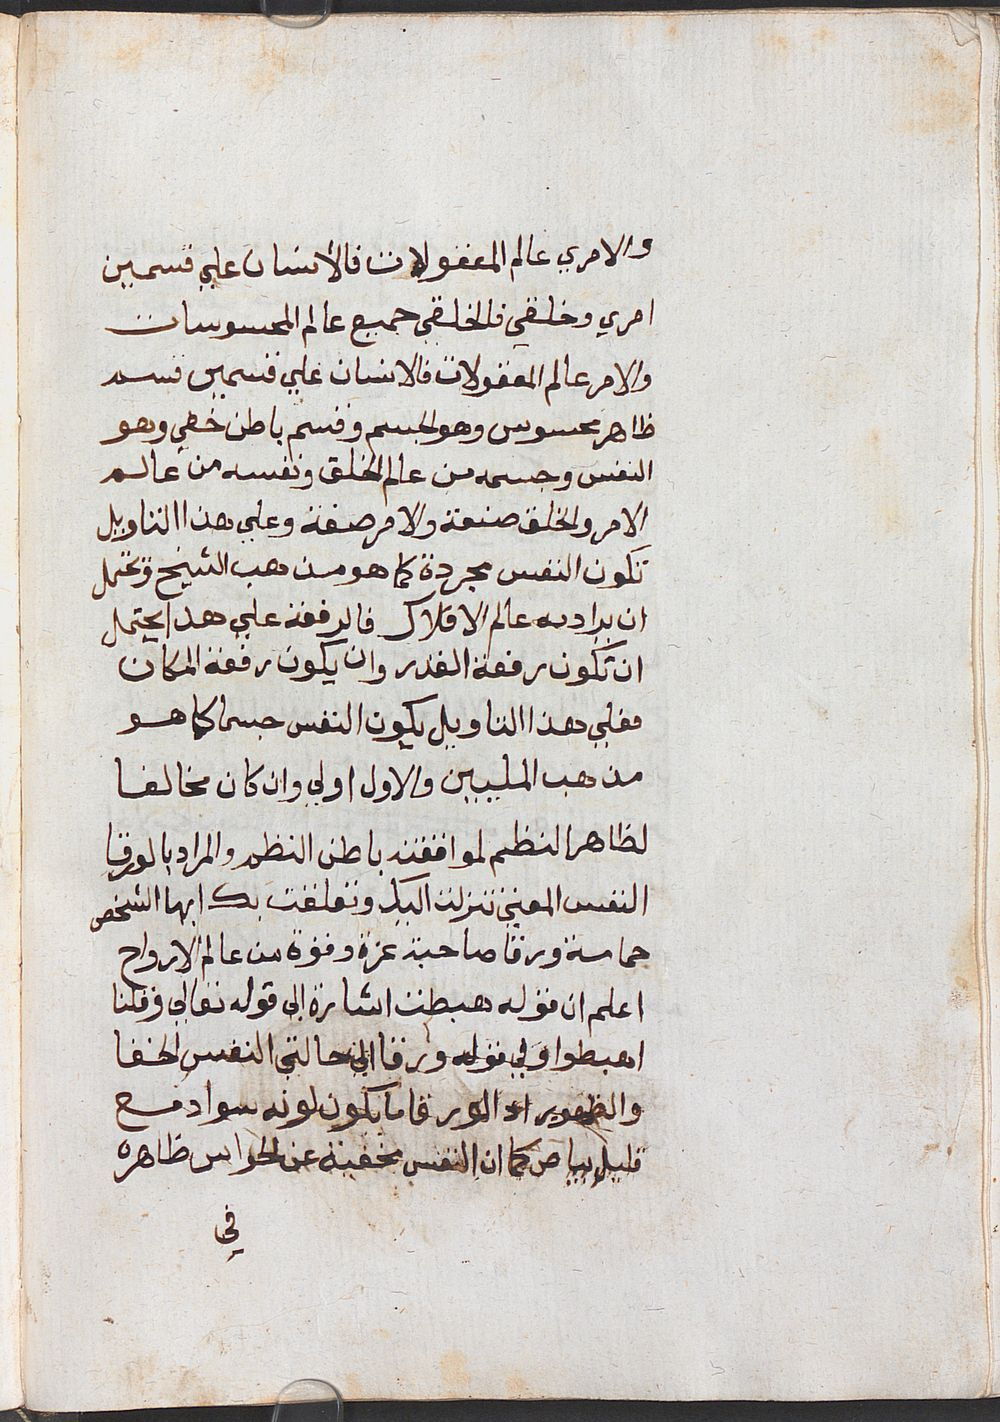 والامري عالم المعقولات فالأنسان علي قسمين
امري وخلقي فالخلقي جميع عالم المحسوسات
والامر عالم المعقولات فالانسان علي قسمين قسم
ظاهر محسوس وهو الجسم وقسم باطن خفي وهو
النفس وجسمه من عالم الخلق ونفسه من عالم
الامر والخلق صنعة والامر صفة وعلي هذا التاويل
تكون النفس مجردة كما هو مذهب الشيخ وتحتمل
ان يراد به عالم الافلاك فالرفعة علي هذا يحتمل
ان تكون رفعة القدر وان يكون رفعة المكان
فعلي هذا التاويل يكون النفس جسما كما هو
مذهب المليين والاول اولي وان كان مخالفا
لظاهر النظم لموافقته باطن النظم والمراد بالورقا
النفس المعني تنزلت اليك وتعلقت بك ايها الشخص
حماسة ورقا صاحبة عزة وقوة من عالم الارواح
اعلم ان قوله هبطت اشارة الي قوله تعالي وقلنا
اهبطوا وفي قوله ورقا الي حالتي النفس الخفا
والظهور اذ الورقا ما يكون لونه سواد مع
قليل بياض كما ان النفس مخفية عن الحواس ظاهره
في